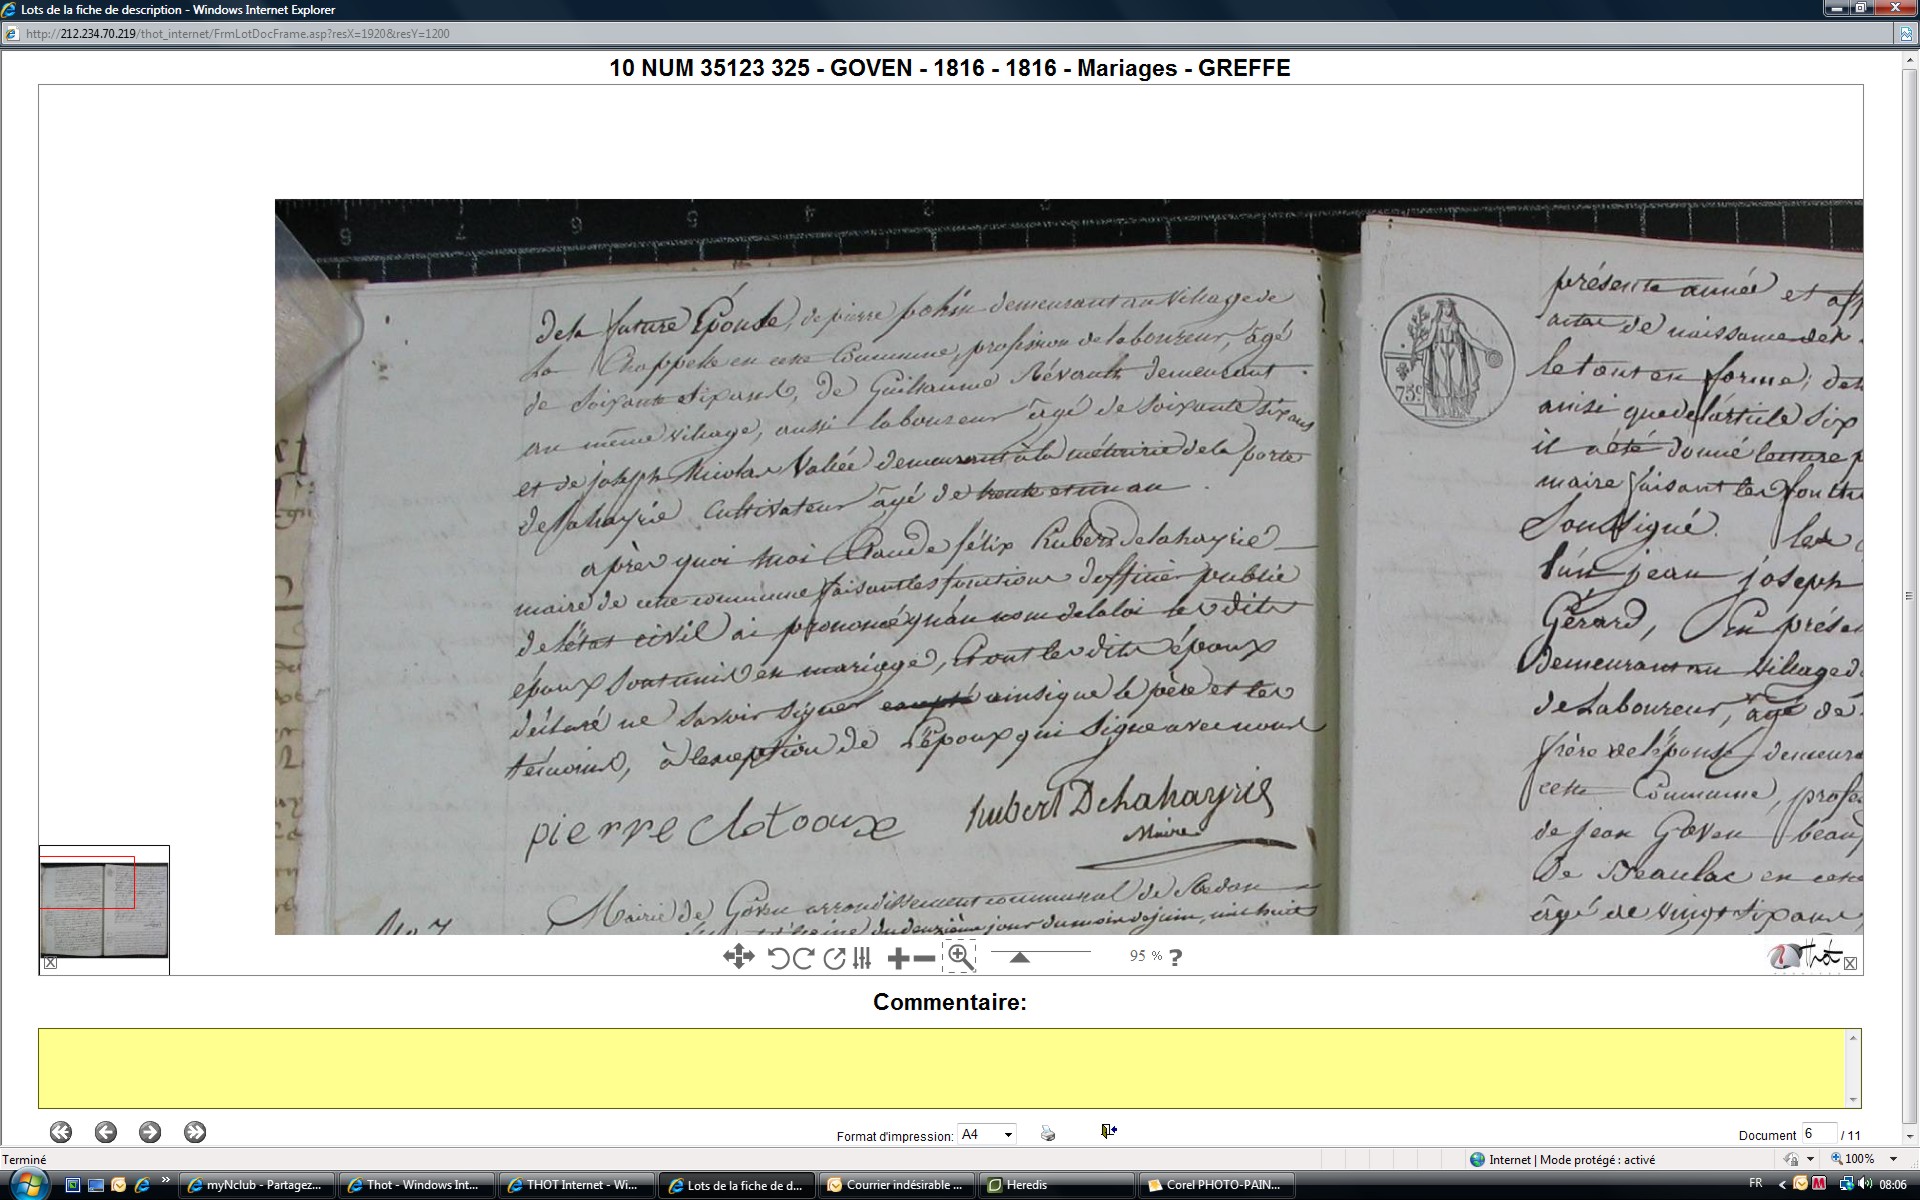 Lots de la fiche de description - Windows Internet Explorer
http://212.234.70.219/thot_internet/FrmLotDocFrame.asp?resX=1920&resY=1200
10 NUM 35123 325 - GOVEN - 1816 - 1816 - Mariages - GREFFE
dela future Épouse, de pierre demeurant au village de
La Chappelle en cette Commune, profession de laboureur, âgé
de Soixante Six ans, de Guillaume demeurant
au même village, aussi laboureur âgé de Soixante Six ans
et de joseph Nicolas Vallée demeurant à la métairie de la porte
delahayrie Cultivateur âgé de trente et un an .
après quoi moi Claude félix hubert Delahayrie
maire de cette commune faisant les fonctions d'officier public
de l'état civil ai prononcé qu'au nom de la loi les dits
époux sont unis en mariage, et ont les dits époux
déclaré ne Savoir signer ainsi que le père et les
témoins, à l'exception de L'époux qui Signe avec nous
pierre clotoaux
hubert Delahayrie
Maire
Mairie de Goven arrondissement communal de Redon
du deuxième jour du mois de juin, mil huit
No 7
75c
présente année et
acte de naissance de
le tout en forme; de
ainsi que de l'article Six
il a été donné lecture
maire faisant les
Soussigné. les
l'un jean joseph
Gérard, En
demeurant au village d
de Laboureur, âgé de
frère de l'épouse
cette Commune,
de jean Goven
De Beaulac en cette
âgé de vingt Six ans
95 %
?
Thot
Commentaire:
Format d'impression: A4
Document 6 / 11
Terminé
Internet | Mode protégé : activé
100%
myNclub - Partagez...
Thot - Windows Int...
THOT Internet - Wi...
Lots de la fiche de d...
Courrier indésirable ...
Heredis
Corel PHOTO-PAIN...
FR
08:06